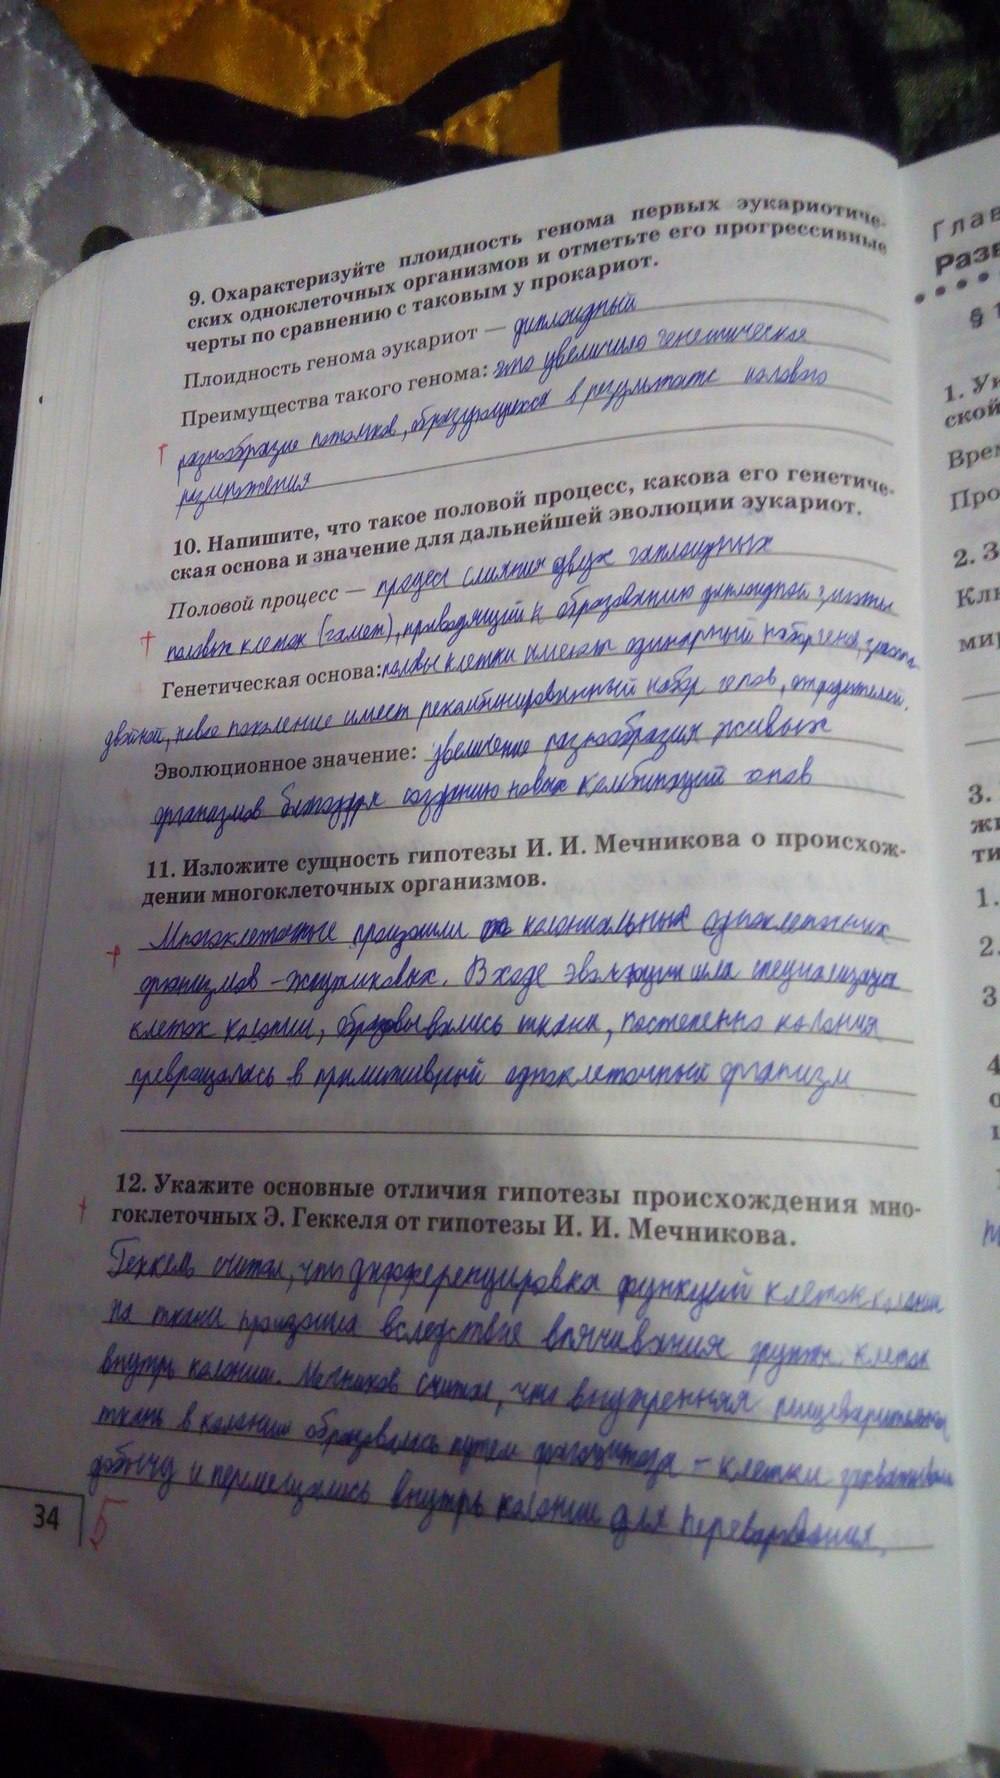 9. Охарактеризуйте плоидность генома первых эукариотиче-
ских одноклеточных организмов и отметьте его прогрессивные
черты по сравнению с таковым у прокариот.
Плоидность генома эукариот — диплоидный
Преимущества такого генома: это увеличило генетическое
разнообразие потомков, образующихся в результате полового
размножения
10. Напишите, что такое половой процесс, какова его генетиче-
ская основа и значение для дальнейшей эволюции эукариот.
Половой процесс — процесс слияния двух гаплоидных
половых клеток (гамет), приводящий к образованию диплоидной зиготы
Генетическая основа: половы клетки имеют одинарный набор генов, зигота
двойной, новое поколение имеет рекомбинированный набор генов, от родителей.
Эволюционное значение: увеличение разнообразия живых
организмов благодаря созданию новых комбинаций генов
11. Изложите сущность гипотезы И. И. Мечникова о происхож-
дении многоклеточных организмов.
Многоклеточные произошли от колониальных одноклеточных
организмов - жгутиковых. В ходе эволюции шла специализация
клеток колонии, образовывались ткани, постепенно колония
превращалась в примитивный одноклеточный организм
12. Укажите основные отличия гипотезы происхождения мно-
гоклеточных Э. Геккеля от гипотезы И. И. Мечникова.
Геккель считал, что дифференцировка функций клеток колонии
на ткани произошла вследствие впячивания группы клеток
внутрь колонии. Мечников считал, что внутренняя пищеварительная
ткань в колонии образовалась путем фагоцитоза - клетки захватывали
добычу и перемещались внутрь колонии для переваривания.
34
5
Глав
Разв
§ 1
1. Ук
ской
Врем
Про
2. З
Клю
мир
3.
жи
ти
1.
2.
3
4